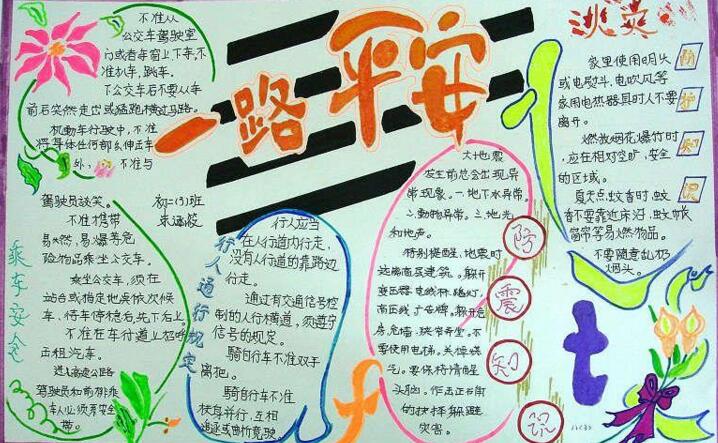 一路平安
不准从
公交车驾驶室
门或者车窗上下车,不
准扒车、跳车。
下公交车后不要从车
前后突然走出或猛跑横过马路。
机动车行驶中,不准
将身体任何部分伸出车
外,
不准与
驾驶员谈笑。
不准携带
易燃、易爆等危
险物品乘坐公交车。
乘坐公交车,须在
站台或指定地点依次候
车,待车停稳后,先下后上。
不准在车行道上招呼
出租汽车。
进入高速公路
驾驶员和前排乘
车人必须系安全
带。
乘车安全
初二(5)班
行人通行规定
行人应当
在人行道内行走,
没有人行道的靠路边
行走。
通过有交通信号控
制的人行横道,须遵守
信号的规定。
骑自行车不准双手
离把。
骑自行车不准
扶身并行、互相
追逐或曲折竞驶
大地震
发生前总会出现异
常现象。一、地下水异常。
二、动物异常。三、地光
和地声。
特别提醒,地震时
远离高层建筑。躲开
变压器、电线杆、路灯,
高压线、广告牌。躲开危
房、危墙、狭窄弄堂。不
要使用电梯。关掉煤
气。要保持清醒
头脑。作出正确
的抉择躲避
灾害。
防震知识
家里使用明火
或电熨斗、电吹风等
家用电热器具时人不要
离开。
燃放烟花爆竹时,
应在相对空旷,安全
的区域。
夏天点蚊香时,蚊
香不要靠近床沿、蚊帐
窗帘等易燃物品。
不要随意乱扔
烟头。
防护知识